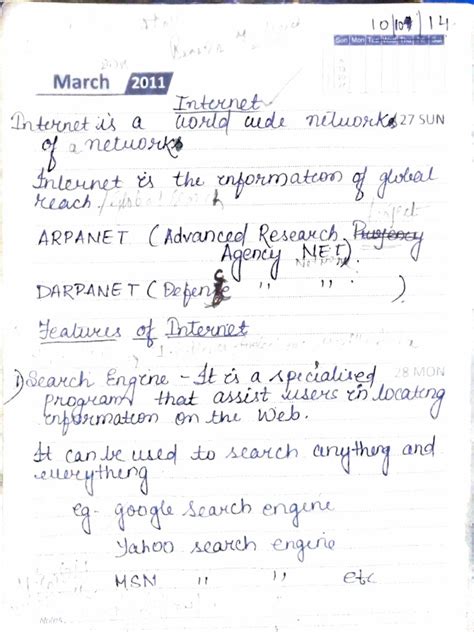 10/09/14
Sun Mon Tue Wed Thu Fri Sat
March 2011
Internet
Internet is a world wide network 27 SUN
of a network
Internet is the information of global
reach.
ARPANET (Advanced Research
Agency NET)
DARPANET (Defence " " ")
Features of Internet
1) Search Engine - It is a specialised 28 MON
program that assist users in locating
information on the Web.
It can be used to search anything and
everything
eg- google search engine
Yahoo search engine
MSN " " etc
Notes